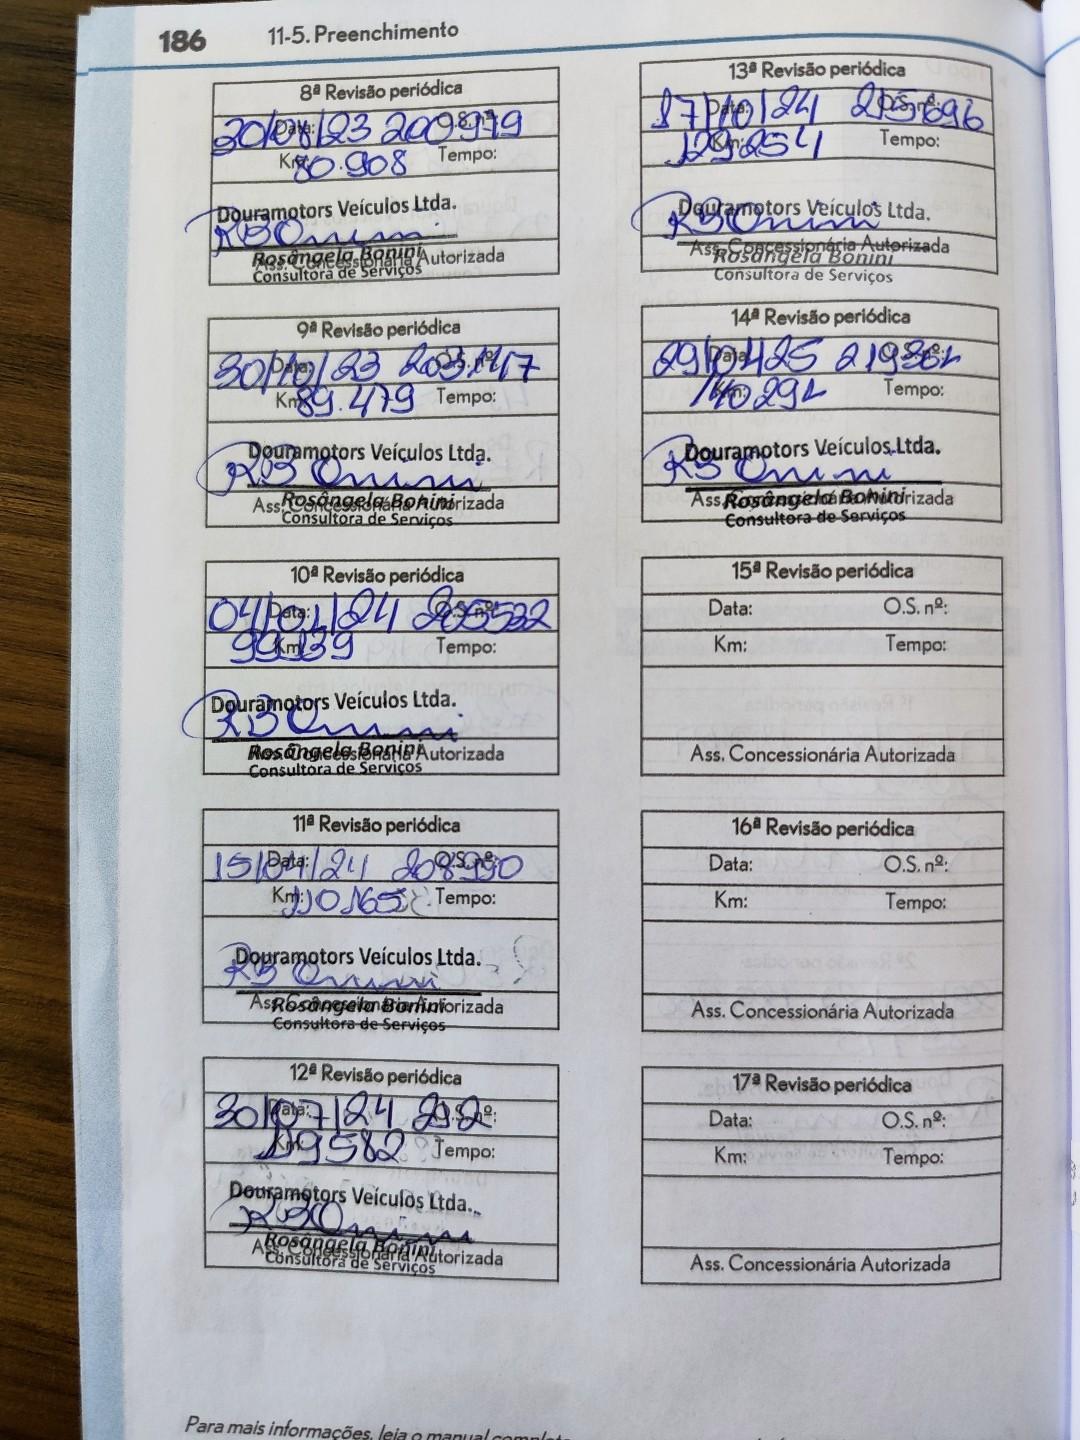 186 11-5. Preenchimento
8ª Revisão periódica
Data: O.S. nº:
200979
Km: 80.908 Tempo:
Douramotors Veículos Ltda.
Ass. Concessionária Autorizada
Rosângela Bonini
Consultora de Serviços
9ª Revisão periódica
Data: 30/10/23 O.S. nº:
Km: 89.479 Tempo:
Douramotors Veículos Ltda.
Ass. Concessionária Autorizada
Rosângela Bonini
Consultora de Serviços
10ª Revisão periódica
Data: 04/01/24 O.S. nº: 205532
Km: 99139 Tempo:
Douramotors Veículos Ltda.
Ass. Concessionária Autorizada
Rosângela Bonini
Consultora de Serviços
11ª Revisão periódica
Data: 15/04/24 O.S. nº: 208990
Km: 110165 Tempo:
Douramotors Veículos Ltda.
Ass. Concessionária Autorizada
Rosângela Bonini
Consultora de Serviços
12ª Revisão periódica
Data: 30/07/24 O.S. nº: 212
Km: 119582 Tempo:
Douramotors Veículos Ltda.
Ass. Concessionária Autorizada
Rosângela Bonini
Consultora de Serviços
13ª Revisão periódica
Data: O.S. nº:
Km: 129254 Tempo:
Douramotors Veículos Ltda.
Ass. Concessionária Autorizada
Rosângela Bonini
Consultora de Serviços
14ª Revisão periódica
Data: 29/04/25 O.S. nº: 219361
Km: 140291 Tempo:
Douramotors Veículos Ltda.
Ass. Concessionária Autorizada
Rosângela Bonini
Consultora de Serviços
15ª Revisão periódica
Data: O.S. nº:
Km: Tempo:
Ass. Concessionária Autorizada
16ª Revisão periódica
Data: O.S. nº:
Km: Tempo:
Ass. Concessionária Autorizada
17ª Revisão periódica
Data: O.S. nº:
Km: Tempo:
Ass. Concessionária Autorizada
Para mais informações, leia o manual completo